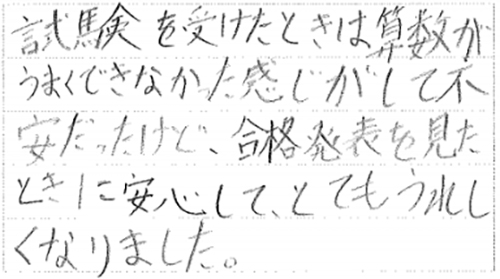 試験を受けたときは算数が
うまくできなかった感じがして不
安だったけど、合格発表を見た
ときに安心して、とてもうれし
くなりました。